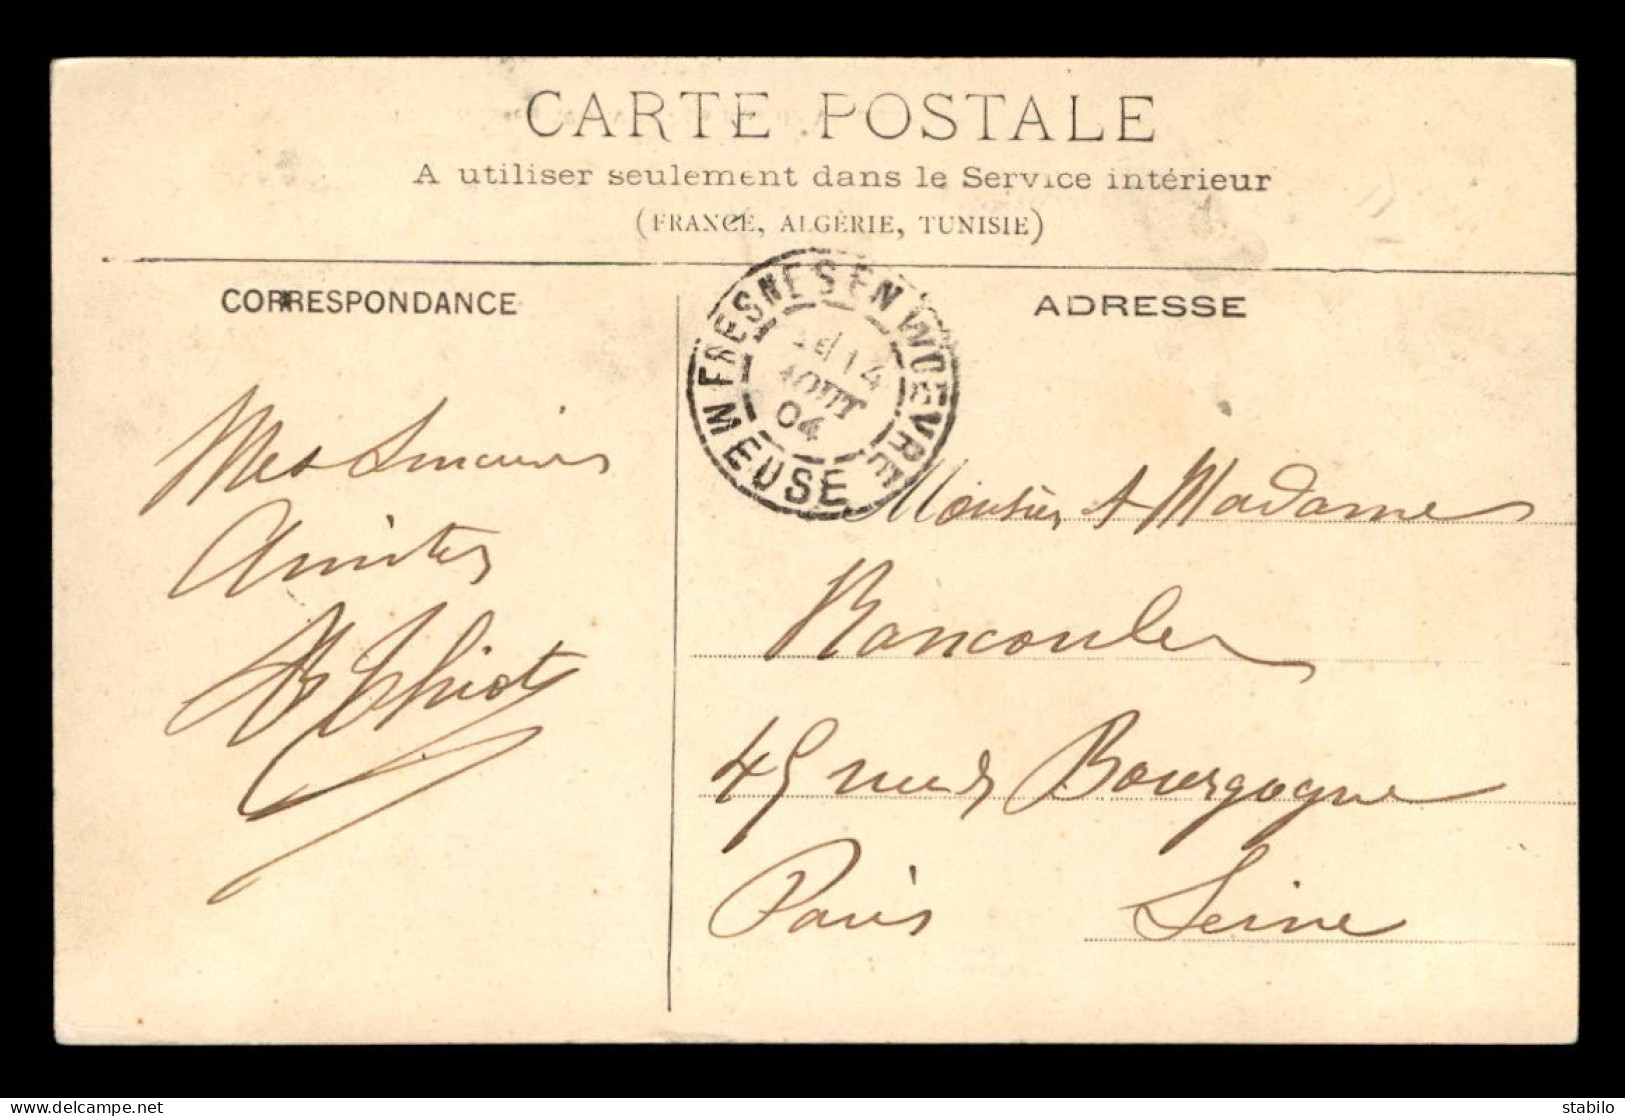 CARTE POSTALE
A utiliser seulement dans le Service intérieur
(FRANCE, ALGÉRIE, TUNISIE)
CORRESPONDANCE
ADRESSE
FRESNES EN WOEVRE
14
AOUT
04
MEUSE
Mes Sincères
Amitiés
Monsieur & Madame
Rancoules
45 rue de Bourgogne
Paris Seine
stabylo